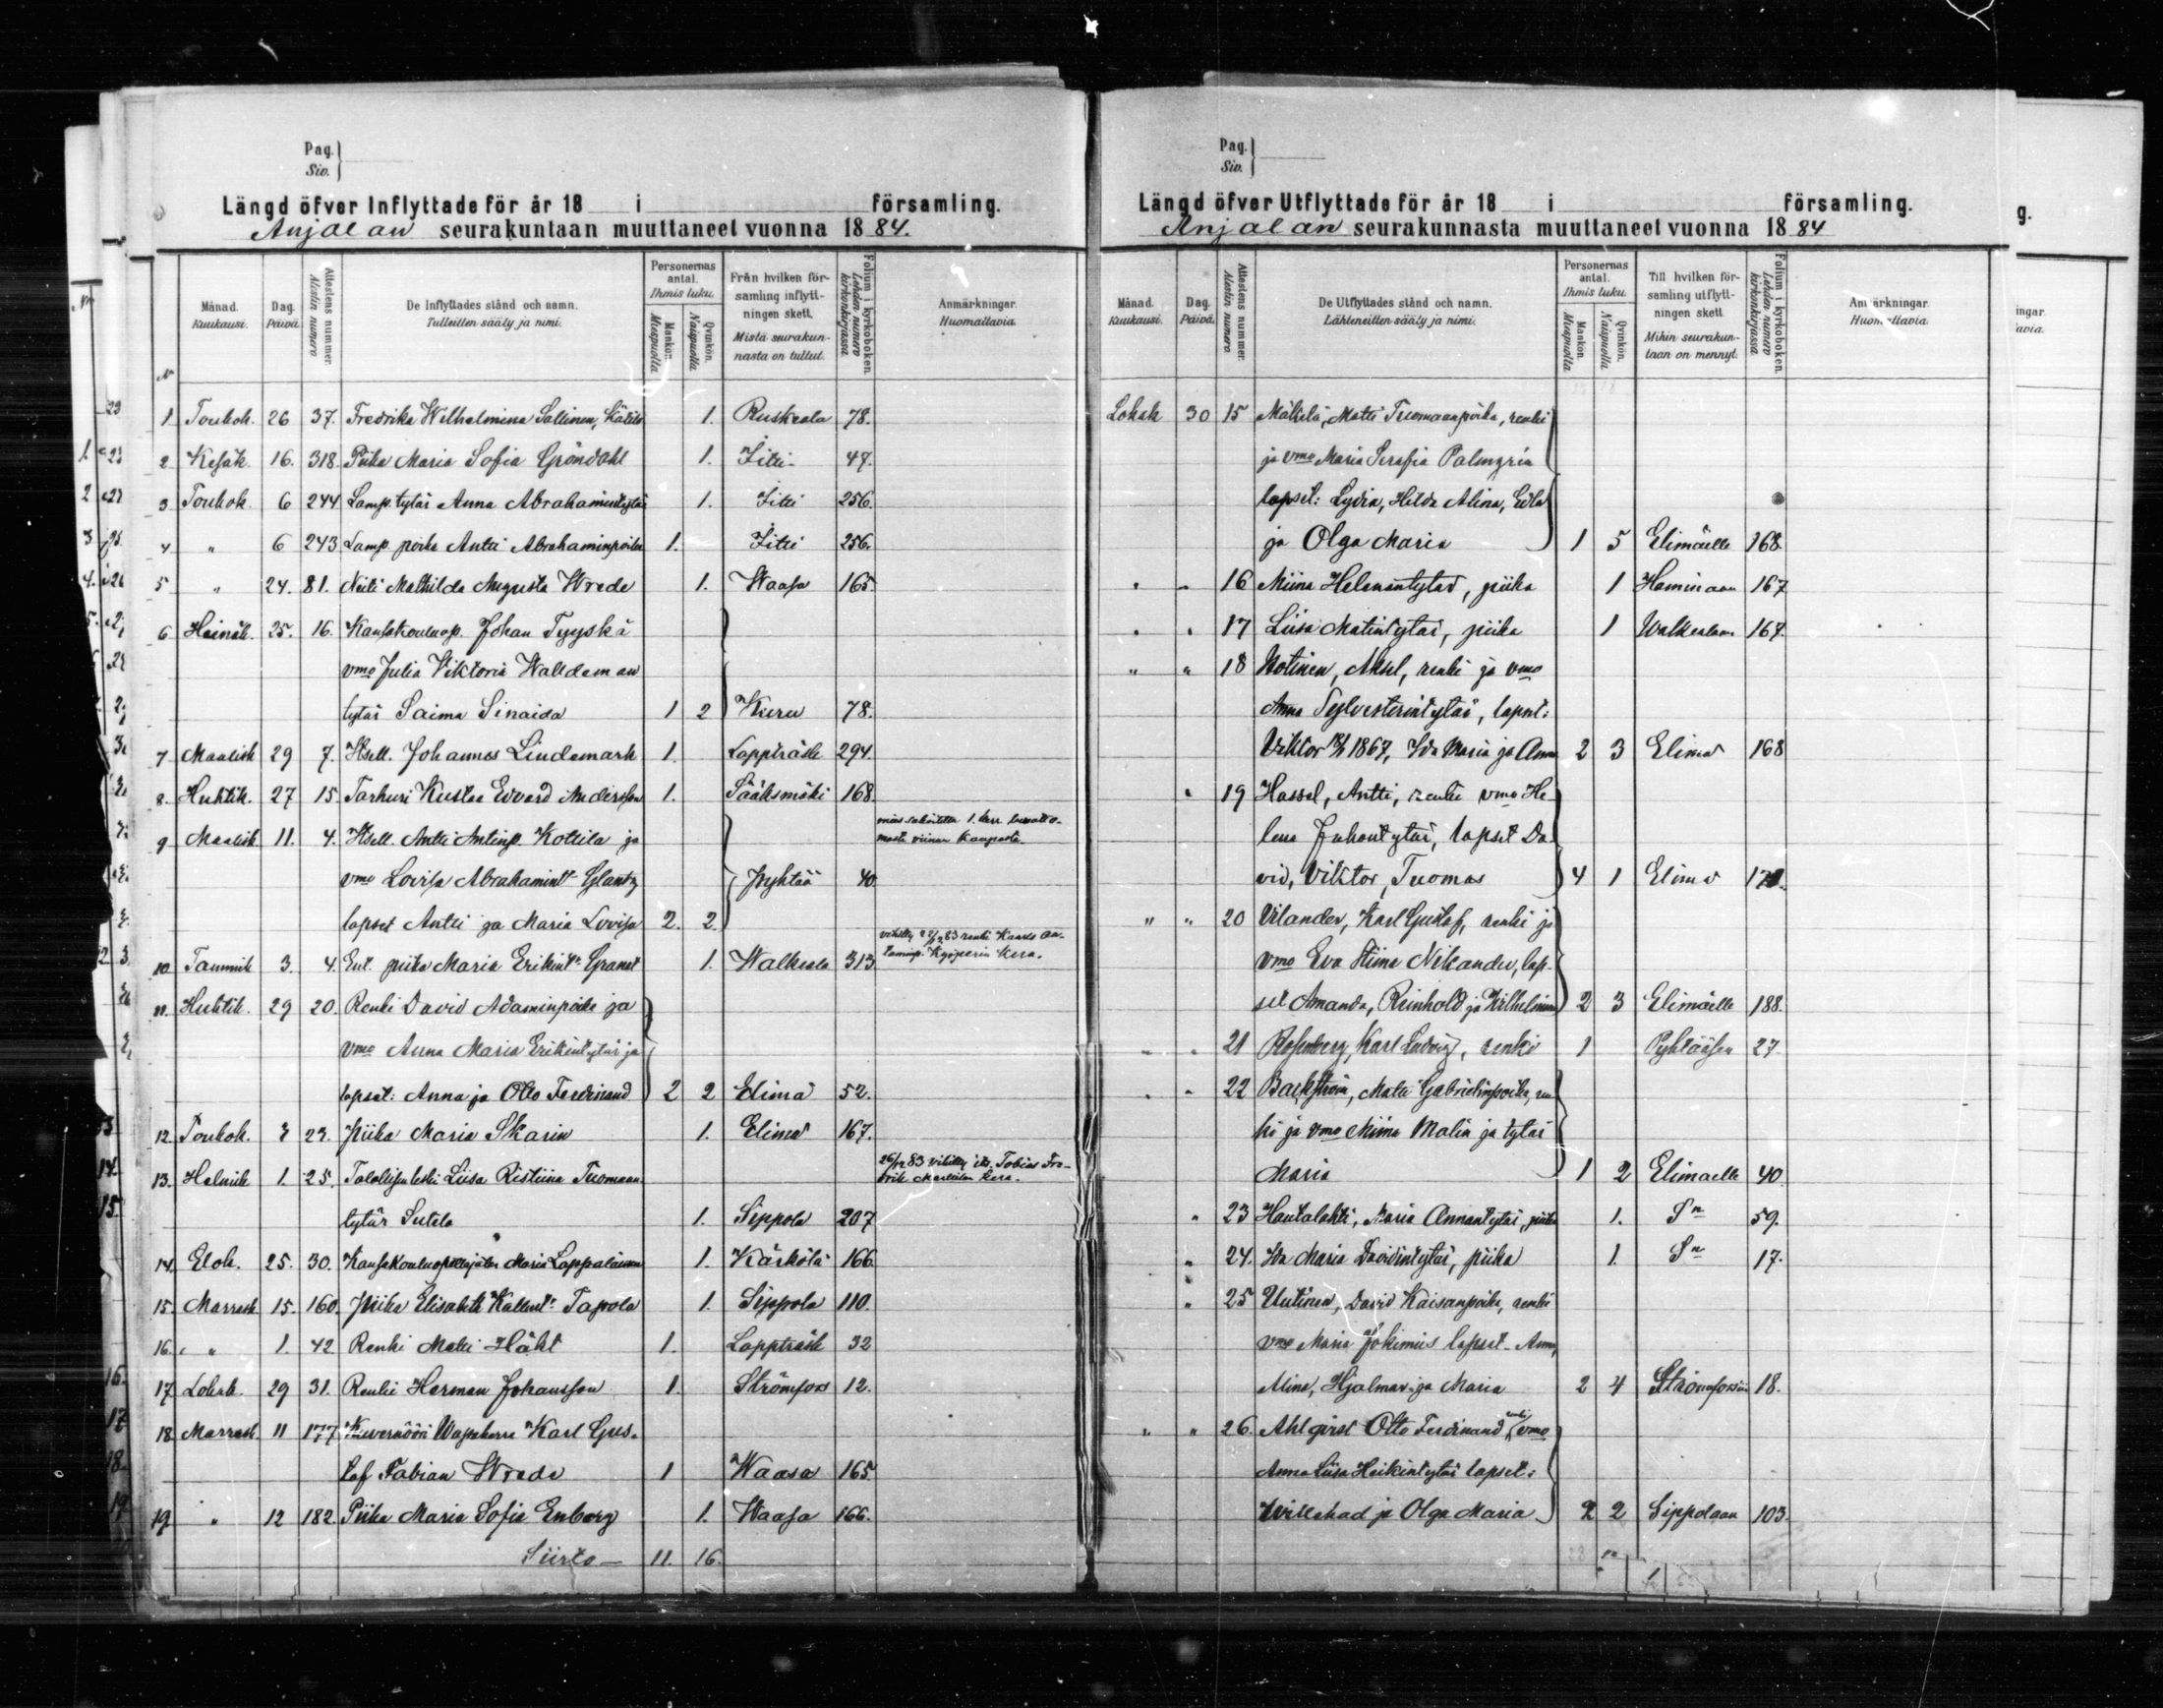 Pag.
Siv.
Längd öfver Inflyttade för år 18 i församling.
Anjalan seurakuntaan muuttaneet vuonna 1884.
Månad. Kuukausi.
Dag. Päivä.
Attestens nummer. Alestin numero
De Inflyttades stånd och namn. Tulleitten sääty ja nimi.
Personernas antal. Ihmis luku.
Mankön. Miespuolia
Qvinkön. Naispuolia
Från hvilken församling inflyttningen skett. Mistä seurakunnasta on tullut.
Folium i kyrkoboken. Lehden numero kirkonkirjassa
Anmärkningar. Huomattavia.
1 Toukok. 26 37. Fredrika Wilhelmina Sallinen, Kätilö 1. Ruskeala 78.
2 Kesäk. 16. 318. Piika Maria Sofia Gröndahl 1. Iitti 47.
3 Toukok. 6 244 Lamp. tytär Anna Abrahamintytär 1. Iitti 256.
4 " 6 243 Lamp. poika Antti Abrahaminpoika 1. Iitti 256.
5 " 24. 81. Neiti Mathilda Augusta Wrede 1. Waasa 165.
6 Heinäk. 25. 16. Kansakouluop. Johan Tyyskä
vmo Julia Viktoria Walldeman
tytär Saima Sinaida 1 2 Kuru 78.
7 Maalisk 29 7. Itsell. Johannes Lindemark 1. Lappträsk 294.
8. Huhtik. 27 15. Tarhuri Kustaa Edvard Andersson 1. Sääksmäki 168.
9 Maalisk 11. 4. Itsell. Antti Antinp. Kottila ja
mies sakoitettu 1. kerr. luvatto-
masta viinan kaupasta.
vmo Lovisa Abrahamint. Glantz Pyhtää 40
lapset Antti ja Maria Lovisa 2. 2.
vihitty 22/12 83 renki Kaarle An-
taminp. Kyöperin kera.
10. Tammik 3. 4. Ent. piika Maria Erikint. Granat 1. Walkeala 313
11. Huhtik. 29 20. Renki David Adaminpoika ja
vmo Anna Maria Erikintytär ja
lapset: Anna ja Otto Ferdinand 2 2 Elimä 52.
12. Toukok. 3 23. Piika Maria Skarin 1. Elimä 167.
13. Helmik 1. 25. Talollisen leski Liisa Ristiina Tuomaan-
tytär Sutela 1. Sippola 207
14. Elok. 25. 30. Kansakouluopettajatar Maria Lappalainen 1. Kärkölä 166.
15. Marrask. 15. 160. Piika Elisabeth Kallent. Tapola 1. Sippola 110.
16. " 1. 42 Renki Matti Häkt 1. Lappträsk 32
17. Lokak. 29 31. Renki Herman Johansson 1. Strömfors 12.
18 Marrask. 11 177 Kuvernööri Wapaherra Karl Gus-
taf Fabian Wrede 1 Waasa 165
19 " 12 182 Piika Maria Sofia Enberg 1. Waasa 166.
Siirto — 11. 16.
Pag.
Siv.
Längd öfver Utflyttade för år 18 i församling.
Anjalan seurakunnasta muuttaneet vuonna 1884
Månad. Kuukausi.
Dag. Päivä.
Attestens nummer. Alestin numero
De Utflyttades stånd och namn. Lähteneitten sääty ja nimi.
Personernas antal. Ihmis luku.
Mankön. Miespuolia
Qvinkön. Naispuolia
Till hvilken församling utflyttningen skett. Mihin seurakuntaan on mennyt.
Folium i kyrkoboken. Lehden numero kirkonkirjassa
Anmärkningar. Huomattavia.
Lokak 30 15 Mäkelä, Matti Tuomaanpoika, renki
ja vmo Maria Serafia Palmgrén
lapset: Lydia, Hilda Alina, Edla
ja Olga Maria 1 5 Elimäelle 168.
" " 16 Miina Helenantytär, piika 1 Haminaan 167
" " 17 Liisa Matintytär, piika 1 Walkealaan 167.
" " 18 Notinen, Aksel, renki ja vmo
Anna Sylvesterintytär, lapset:
Viktor 1867, Ida Maria ja Anna 2 3 Elimä 168
" 19 Hassel, Antti, renki vmo He-
lena Juhontytär, lapset Da-
vid, Viktor, Tuomas 4 1 Elimä
" " 20 Vilander, Karl Gustaf, renki ja
vmo Eva Stiina Nikander, lap-
set Amanda, Reinhold ja Wilhelmina 2 3 Elimäelle 188.
" " 21 Rosenberg, Karl Ludvig, renki 1 Pyhtääsen 27
" " 22 Backström, Matti Gabrielinpoika, ren-
ki ja vmo Miina Malin ja tytär
Maria 1 2 Elimaelle 40
" 23 Hautalahti, Maria Annantytär, piika 1. Sn 59.
" 24. Ida Maria Davidintytär, piika 1. Sn 17.
" 25 Uutinen, David Kaisanpoika, renki
vmo Maria Jokimies lapset Anna,
Mina, Hjalmar ja Maria 2 4 Strömforsiin 18.
" " 26. Ahlqvist Otto Ferdinand renki, vmo
Anna Liisa Heikintytär lapset:
Willehad ja Olga Maria 2 2 Sippolaan 103.